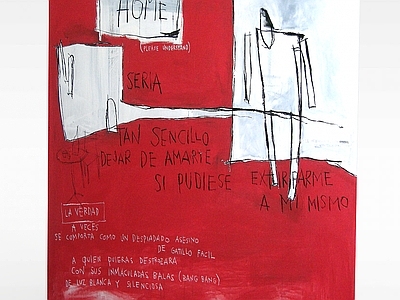 HOME
(PLEASE UNDERSTAND)
SERIA
TAN SENCILLO
DEJAR DE AMARTE
SI PUDIESE EXTIRPARME
A MI MISMO
LA VERDAD
A VECES
SE COMPORTA COMO UN DESPIADADO ASESINO
DE GATILLO FACIL
A QUIEN QUIERAS DESTROZARA
CON SUS INMACULADAS BALAS (BANG BANG)
DE LUZ BLANCA Y SILENCIOSA